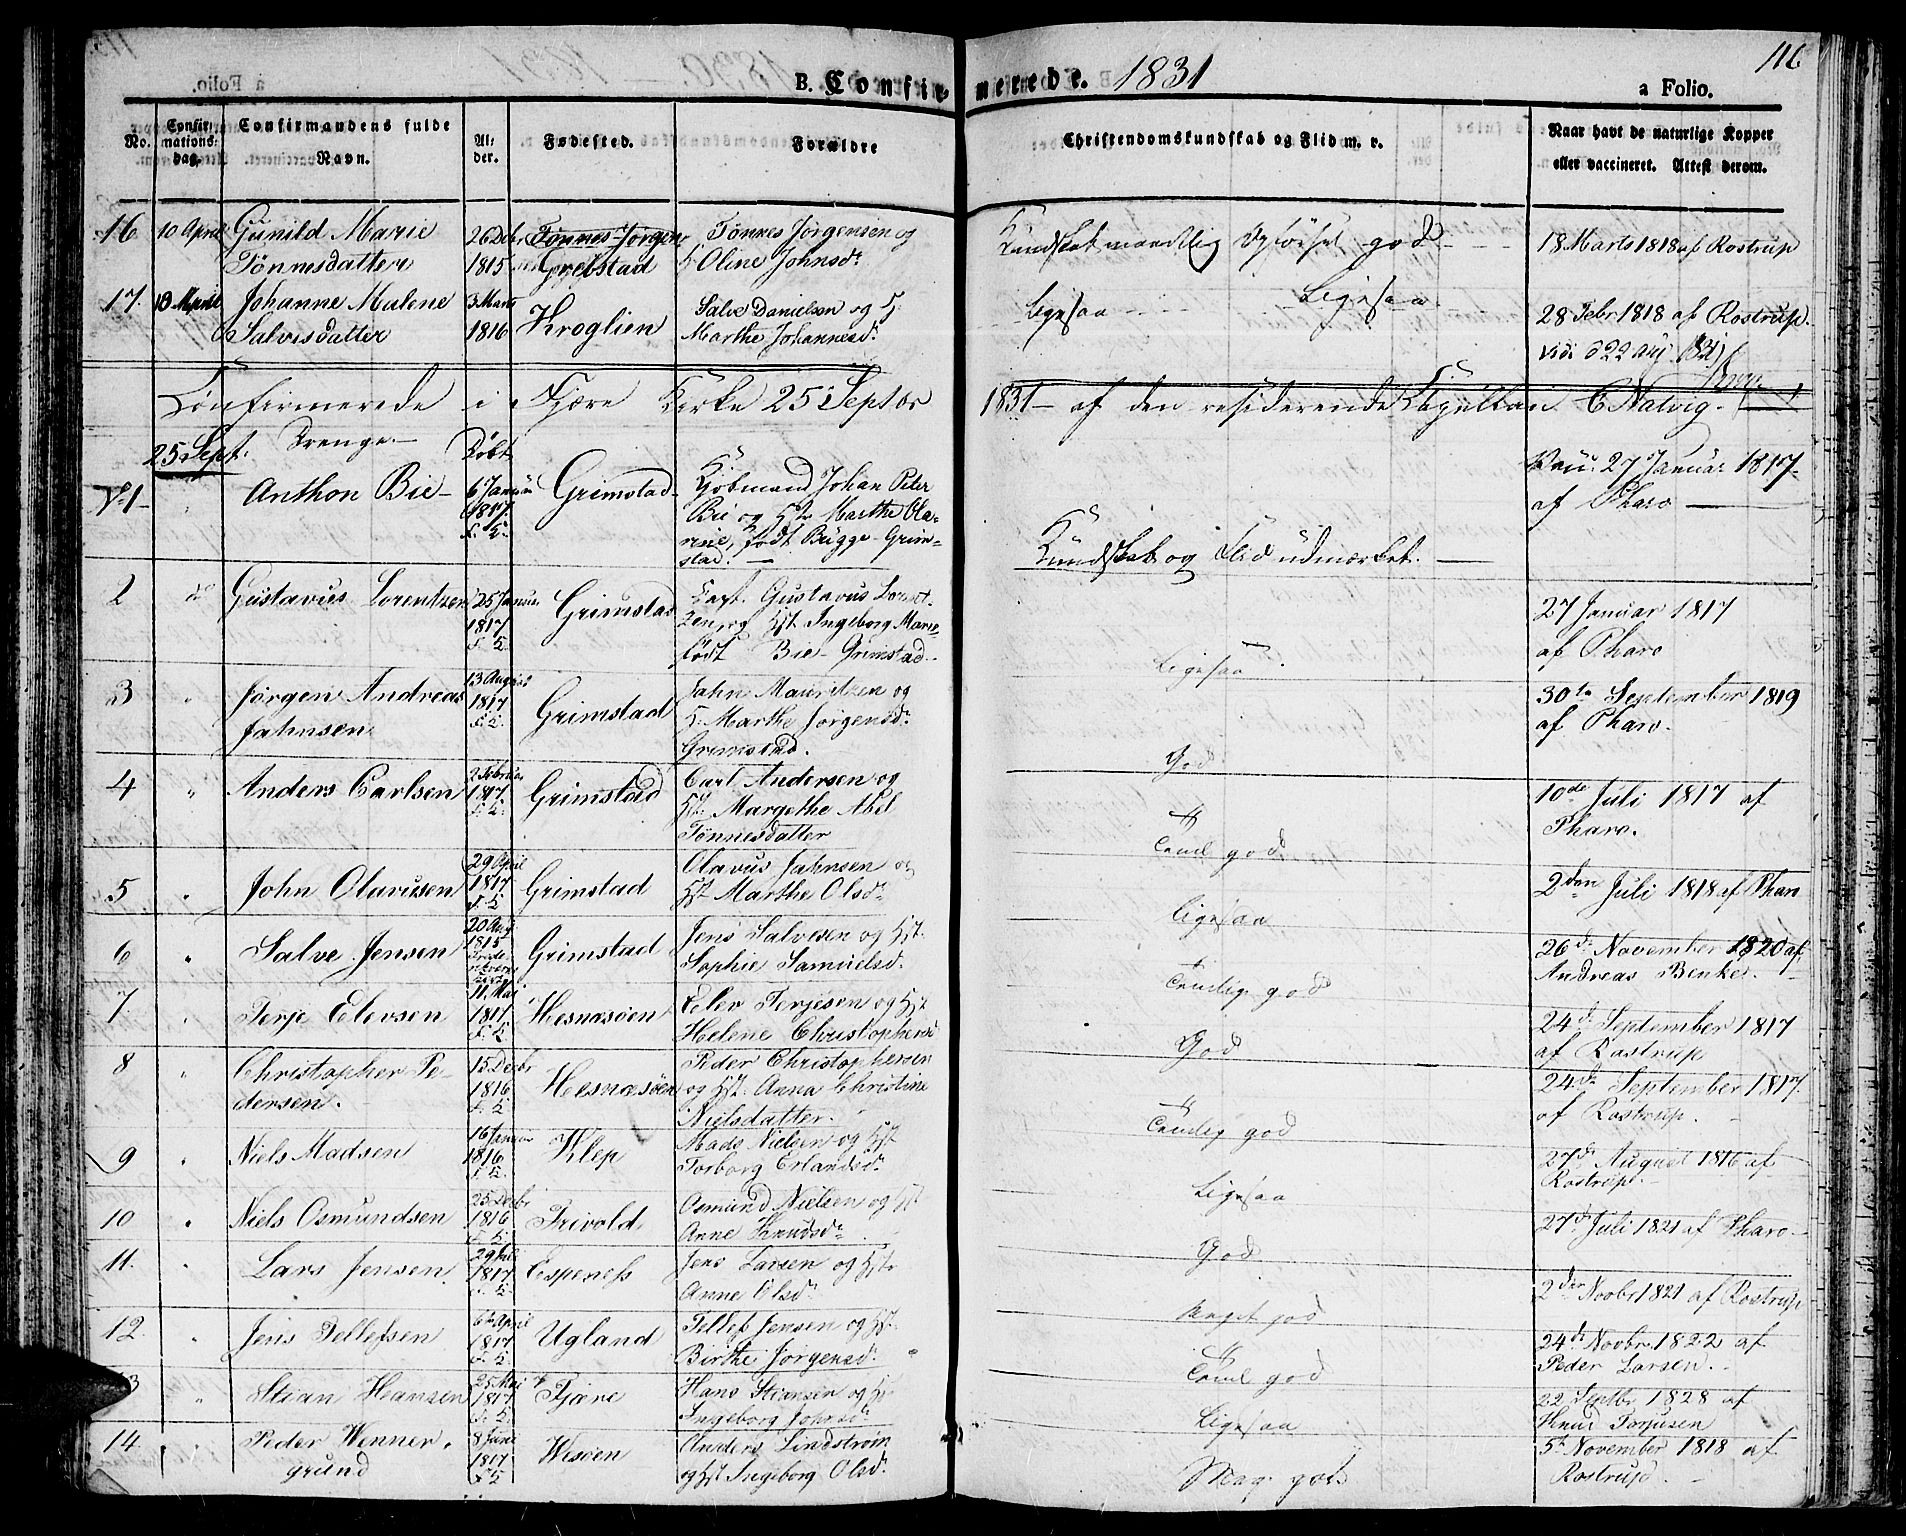 B. Confir
merede. 1831
116
a Folio.
No.
Confir
mations
dag.
Confirmandens fulde
Navn.
Al-
der.
Fødested.
Forældre
Christendomskundskab og Flid m. v.
Naar havt de naturlige Kopper
eller vaccineret. Attest derom.
16 10 April Gunild Marie 26 Debr Tønnes Jørgen Tønnes Jørgensen og Kundskab maadelig Opførsel god 18 Marts 1818 af Rostrup
Tönnesdatter 1815 Grefstad H. Oline Johnsd.
17. 10 April Johanne Malene 3 Marts Kroglien Salve Danielsen og H. Ligesaa Ligesaa 28 Febr 1818 af Rostrup.
Salvesdatter 1816 Marthe Johannesd.
Confirmerede i Fjære Kirke 25 Septbr 1831 - af den residerende Kapellan C Natvig.
25 Sept. Drenge - Døbt
No 1 Anthon Bie - 6 Januar Grimstad Kjøbmand Johan Peter 27 Januar 1817
1817. Bie og Hst Marthe Ola- af Pharo
rine, født Bugge - Grim-
stad. - Kundskab og Flid udmærket. -
2 do Gustavus Lorentzen 25 Januar Grimstad Capt. Gustavus Lorent- 27 Januar 1817
1817 zen, og Hst Ingeborg Marie af Pharo
født Bie - Grimstad Ligesaa
3 " Jørgen Andreas 13 August Grimstad Jahn Mauritzen og 30te September 1819
Jahnsen 1817 H. Marthe Jørgensd. af Pharo.
Grimstad. God
4 " Anders Carlsen 2 Februar Grimstad Carl Andersen og 10de Juli 1817 af
1817 Hst. Margethe Abel Pharo.
Tønnesdatter Teml god
5 " John Olavusen 29 April Grimstad Olavus Jahnsen og 2den Juli 1818 af Pharo
1817 Hst Marthe Olsd. Ligesaa
6 " Salve Jensen 20 Aug Grimstad Jens Salvesen og Hst. 26de November 1820 af
1815 Sophie Samuelsd. Temlig god Andreas Benker.
7 " Terje Elevsen 11 Mai Hesnæsøen Elev Terjesen og Hst 24de September 1817
1817 Helene Christophersd God af Rostrup
8 " Christopher Pe- 15 Decbr Hesnæsøen Peder Christophersen 24de September 1817.
dersen. 1816 og Hst. Anna Christine af Rostrup.
Nielsdatter. Temlig god
9 " Niels Madsen 16 Januar Klep Mads Nielsen og Hst 27de August 1816 af
1816 Torborg Erlandsd. Ligesaa Rostrup.
10 " Niels Osmundsen 25 Decbr Frivold Osmund Nielsen og Hst 27de Juli 1821 af Pharo
1816 Anne Knudsd. God
11. " Lars Jensen 29 Espenes Jens Larsen og Hst 2den Novbr 1821 af Rostrup
1817 Anne Olsd. Meget god
12. " Jens Tellefsen 6te April Ugland Tellef Jensen og Hst. 24de Novbr 1822 af
1817 Birthe Jørgensd. Teml god Peder Larsen.
3 " Stian Hansen 25 Mai Fjære Hans Stiansen og H 22 Septbr 1828 af
1817 Ingeborg Johnsd. Ligesaa Knud Torjusen
14. " Peder Wenner- 8 Juni Wesøen Anders Lindstrøm 5te November 1818 af
grund 1817 og Hst Ingeborg Olsd. Meg. god Rostrup